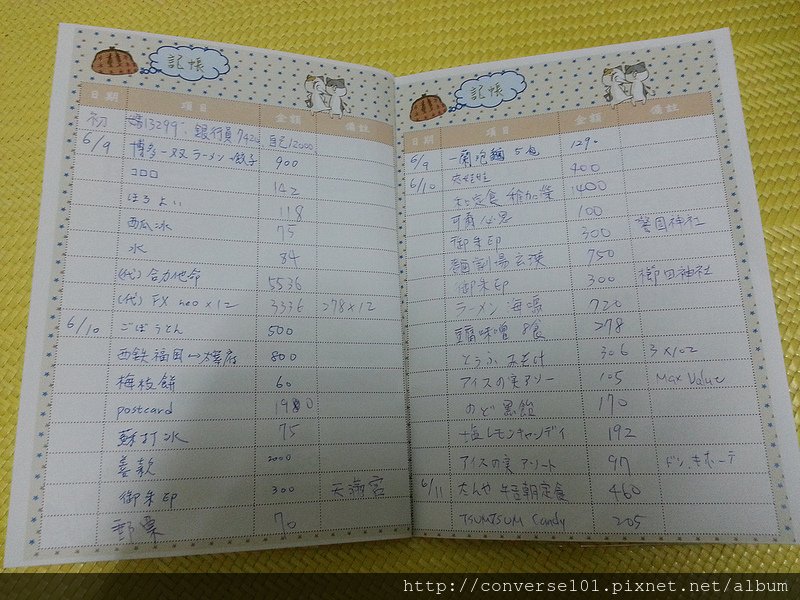 記帳
日期 項目 金額 備註
初 13299. 銀行員7420 自己12000
6/9 博多一双 ラーメン 餃子 900
コロロ 142
ほろよい 118
西瓜冰 75
冰 84
(代) 合力他命 5536
(代) FX neo x12 3336 278x12
6/10 ごぼううどん 500
西鉄福岡 太宰府 800
梅枝餅 60
postcard
蘇打冰 75
善款 2000
御朱印 300 天滿宮
郵票 70
記帳
日期 項目 金額 備註
6/9 一蘭泡麵 5包 1290
6/10 400
定食 1400
100
御朱印 300 警固神社
750
御朱印 300 櫛田神社
ラーメン 海鳴 720
豆腐味噌 8食 278
とうふ みそ汁 306 3x102
アイスの実アソー 105 Max Value
のど黒飴 170
塩レモンキャンディ 192
アイスの実アソート 97 ドン.キホーテ
6/11 朝定食 460
TSUMTSUM Candy 205
http://converse101.pixnet.net/album